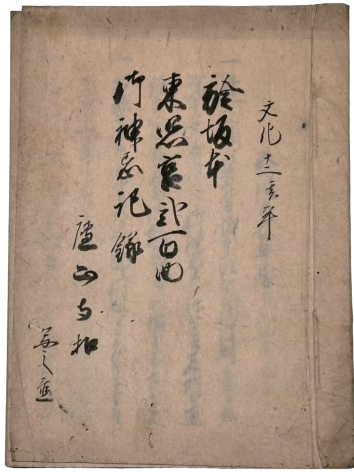 文化十二亥年
於坂本
東照宮弐百回
御神忌記録
廬山寺扣